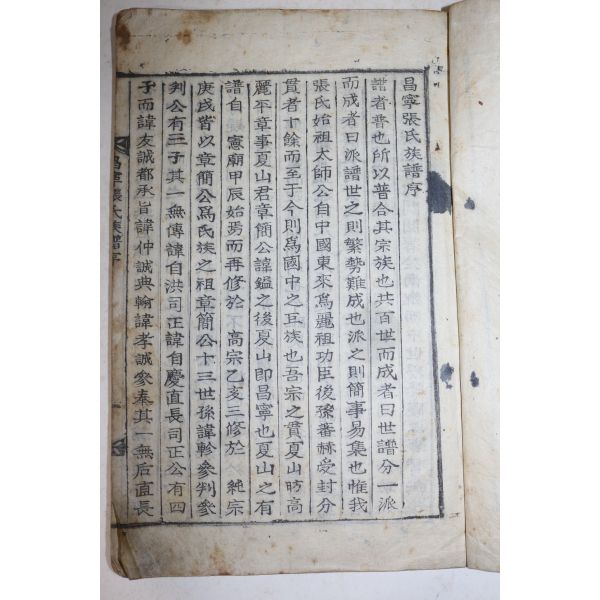 昌寧張氏族譜序
譜者普也所以普合其宗族也共百世而成者曰世譜分一派
而成者曰派譜世之則繁勢難成也派之則簡事易集也惟我
張氏始祖太師公自中國東來爲麗祖功臣後孫蕃赫受封分
貫者十餘而至于今則爲國中之巨族也吾宗之貫夏山昉高
麗平章事夏山君章簡公諱鎰之後夏山即昌寧也夏山之有
譜自 憲廟甲辰始焉而再修於 高宗乙亥三修於 純宗
庚戌皆以章簡公爲氏族之祖章簡公十三世孫諱軫參判參
判公有三子其一無傳諱自洪司正諱自慶直長司正公有四
子而諱友誠都承旨諱仲誠典翰諱孝誠參奉其一無后直長
昌寧張氏族譜序